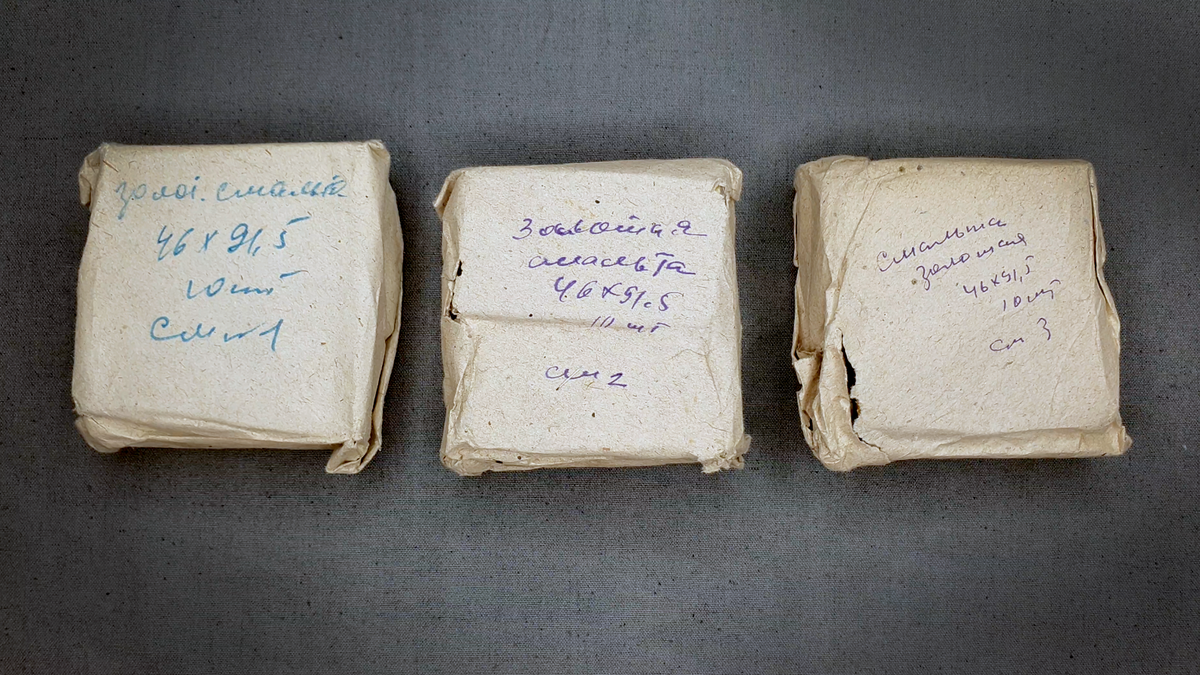 золот. смальта
46 х 91,5
10 шт
См №1
Золотная
смальта
46 х 91.5
10 шт
см 2
Смальта
золотная
46х91,5
10 шт
см 3